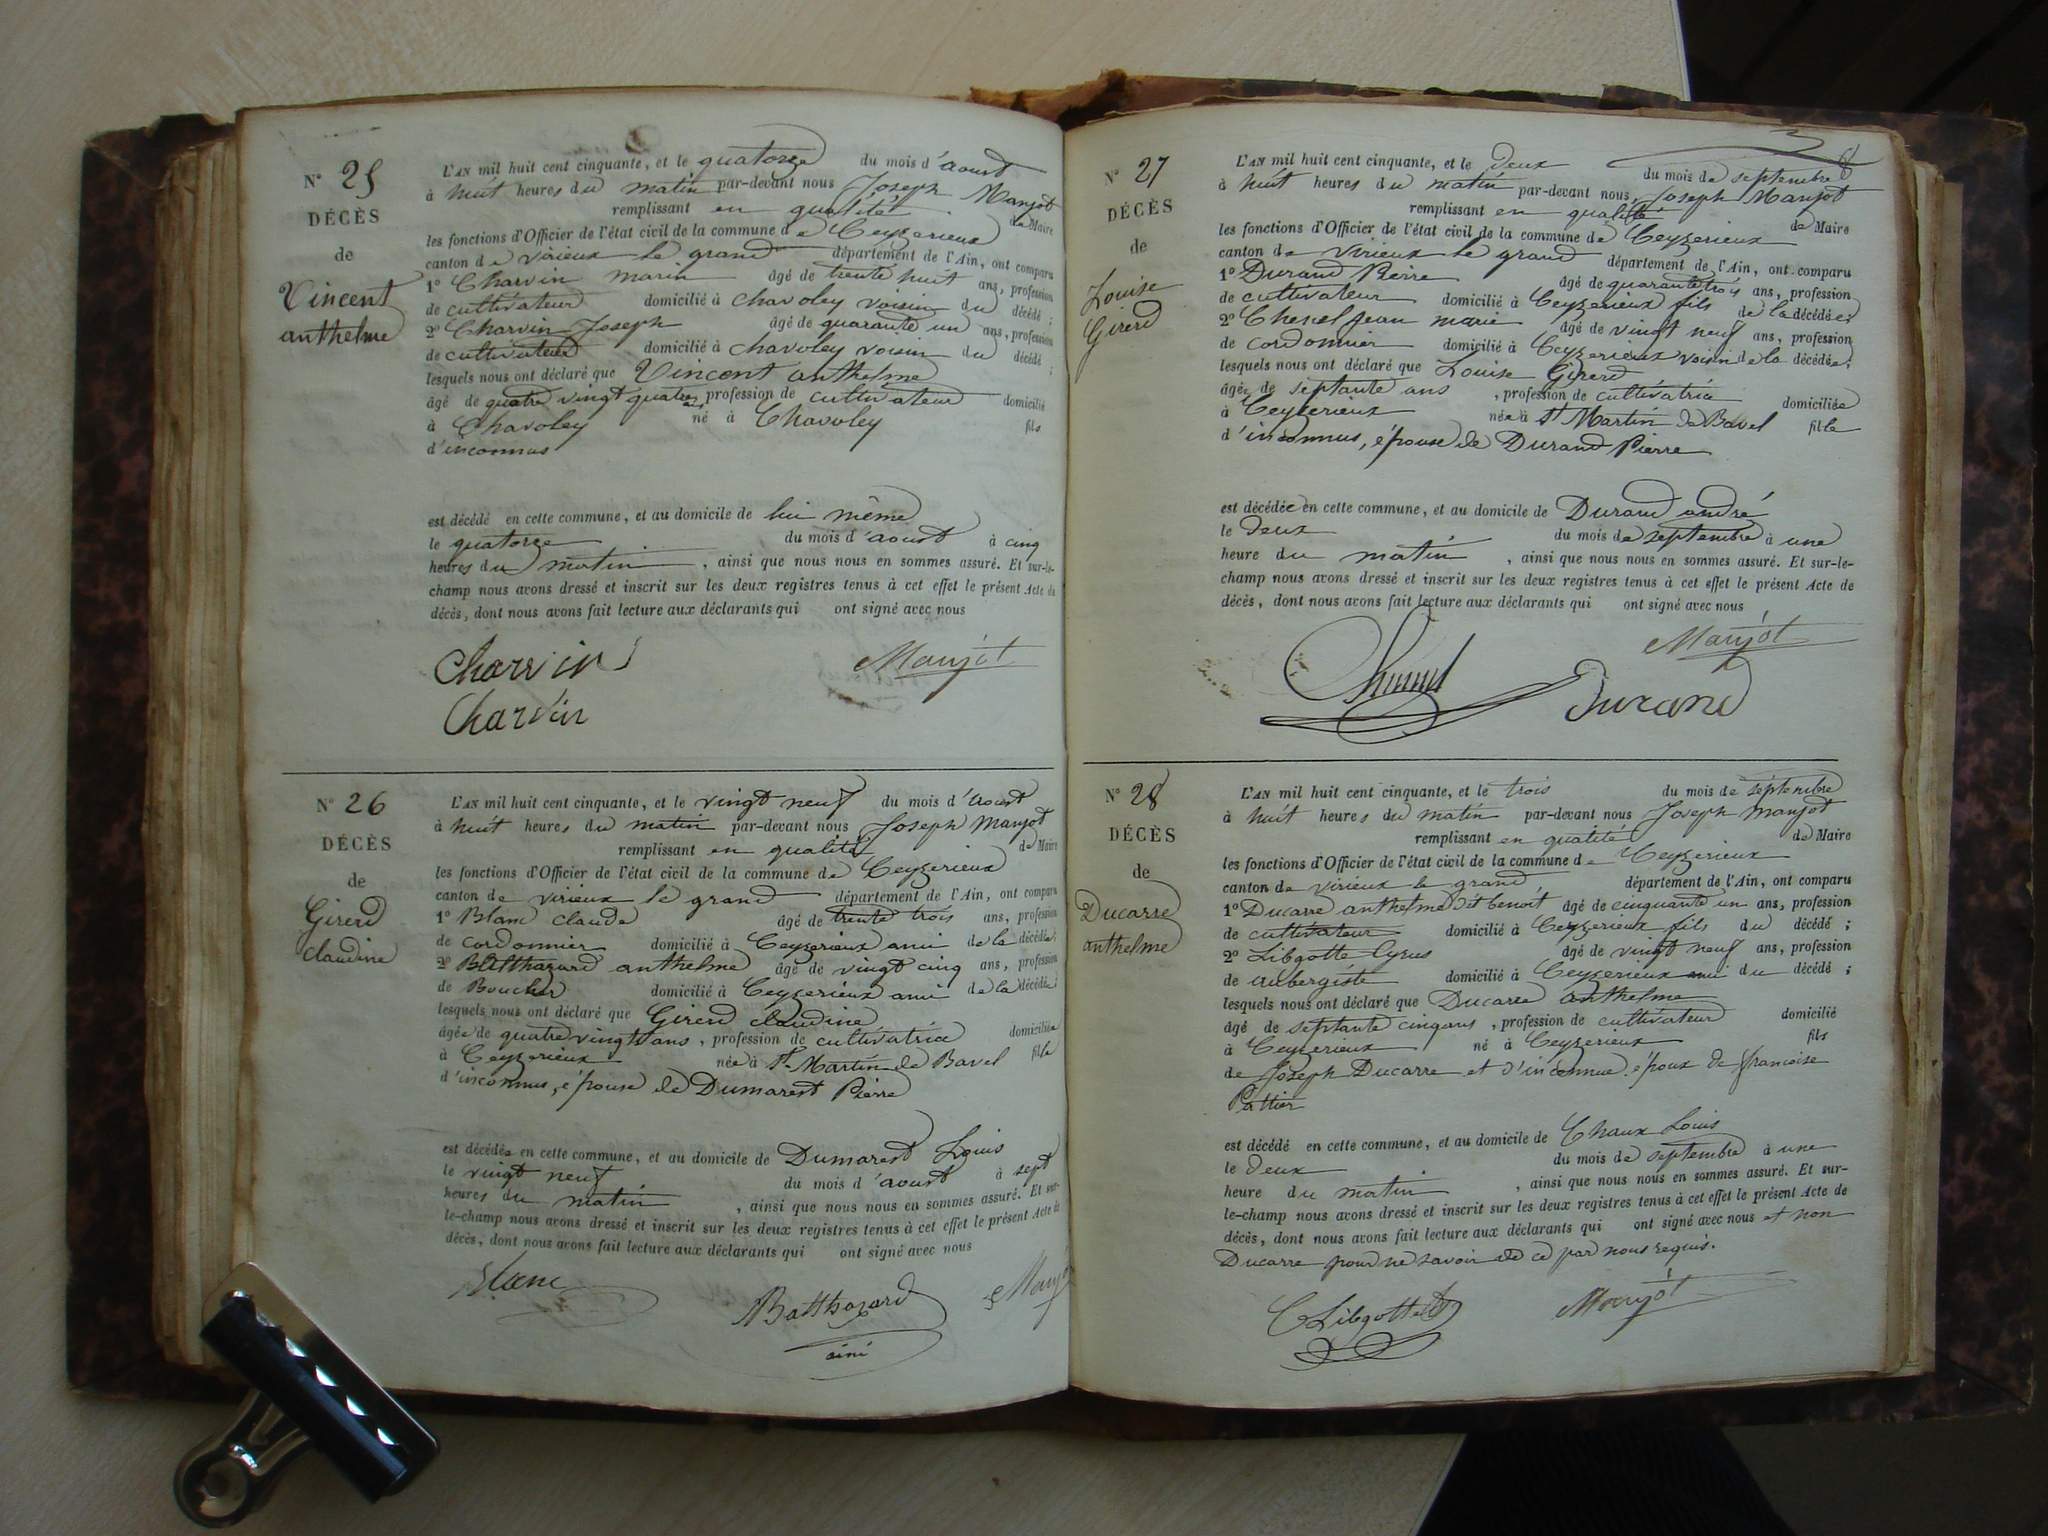 N° 25
DÉCÈS
de
Vincent
anthelme
L'AN mil huit cent cinquante, et le quatorze du mois d'aoust
à huit heures du matin par-devant nous Joseph Manjot
remplissant en qualité de Maire
les fonctions d'Officier de l'état civil de la commune de Ceyzerieux
canton de virieux le grand département de l'Ain, ont comparu
1° Charvin marin âgé de trente huit ans, profession
de cultivateur domicilié à chavoley voisin du décédé ;
2° Charvin Joseph âgé de quarante un ans, profession
de cultivateur domicilié à chavoley voisin du décédé ;
lesquels nous ont déclaré que Vincent anthelme
âgé de quatre vingt quatre, profession de cultivateur domicilié
à Chavoley né à Chavoley fils
d'inconnus
est décédé en cette commune, et au domicile de lui même
le quatorze du mois d'aoust à cinq
heures du matin, ainsi que nous nous en sommes assuré. Et sur-le-
champ nous avons dressé et inscrit sur les deux registres tenus à cet effet le présent Acte de
décès, dont nous avons fait lecture aux déclarants qui ont signé avec nous
Charvin Manjot
Charvin
N° 26
DÉCÈS
de
Girerd
claudine
L'AN mil huit cent cinquante, et le vingt neuf du mois d'aoust
à huit heures du matin par-devant nous Joseph Manjot
remplissant en qualité de Maire
les fonctions d'Officier de l'état civil de la commune de Ceyzerieux
canton de virieux le grand département de l'Ain, ont comparu
1° Blanc claude âgé de trente trois ans, profession
de cordonnier domicilié à Ceyzerieux ami de la décédée ;
2° Balthazard anthelme âgé de vingt cinq ans, profession
de Boucher domicilié à Ceyzerieux ami de la décédée ;
lesquels nous ont déclaré que Girerd claudine
âgée de quatre vingts ans, profession de cultivatrice domiciliée
à Ceyzerieux née à St Martin de Bavel fille
d'inconnus, épouse de Dumarest Pierre
est décédée en cette commune, et au domicile de Dumarest Louis
le vingt neuf du mois d'aoust à sept
heures du matin, ainsi que nous nous en sommes assuré. Et sur-
le-champ nous avons dressé et inscrit sur les deux registres tenus à cet effet le présent Acte de
décès, dont nous avons fait lecture aux déclarants qui ont signé avec nous
Blanc Balthazard Manjot
N° 27
DÉCÈS
de
Louise
Girerd
L'AN mil huit cent cinquante, et le deux du mois de septembre
à huit heures du matin par-devant nous, Joseph Manjot
remplissant en qualité de Maire
les fonctions d'Officier de l'état civil de la commune de Ceyzerieux
canton de virieux le grand département de l'Ain, ont comparu
1° Durand Pierre âgé de quarante trois ans, profession
de cultivateur domicilié à Ceyzerieux fils de la décédée ;
2° Chenel Jean marie âgé de vingt neuf ans, profession
de cordonnier domicilié à Ceyzerieux voisin de la décédée ;
lesquels nous ont déclaré que Louise Girerd
âgée de septante ans, profession de cultivatrice domiciliée
à Ceyzerieux née à St Martin de Bavel fille
d'inconnus, épouse de Durand Pierre
est décédée en cette commune, et au domicile de Durand andré
le deux du mois de septembre à une
heure du matin, ainsi que nous nous en sommes assuré. Et sur-le-
champ nous avons dressé et inscrit sur les deux registres tenus à cet effet le présent Acte de
décès, dont nous avons fait lecture aux déclarants qui ont signé avec nous
Manjot
Durand
N° 28
DÉCÈS
de
Ducarre
anthelme
L'AN mil huit cent cinquante, et le trois du mois de septembre
à huit heures du matin par-devant nous Joseph Manjot
remplissant en qualité de Maire
les fonctions d'Officier de l'état civil de la commune de Ceyzerieux
canton de virieux le grand département de l'Ain, ont comparu
1° Ducarre anthelme dit benoit âgé de cinquante un ans, profession
de cultivateur domicilié à Ceyzerieux fils du décédé ;
2° Libgotte Cyrus âgé de vingt neuf ans, profession
de aubergiste domicilié à Ceyzerieux ami du décédé ;
lesquels nous ont déclaré que Ducarre anthelme
âgé de septante cinq ans, profession de cultivateur domicilié
à Ceyzerieux né à Ceyzerieux fils
de Joseph Ducarre et d'inconnue époux de francoise
Pattier
est décédé en cette commune, et au domicile de Chaux Louis
le deux du mois de septembre à une
heure du matin, ainsi que nous nous en sommes assuré. Et sur-
le-champ nous avons dressé et inscrit sur les deux registres tenus à cet effet le présent Acte de
décès, dont nous avons fait lecture aux déclarants qui ont signé avec nous et non
Ducarre pour ne savoir de ce par nous requis.
C Libgotte Manjot